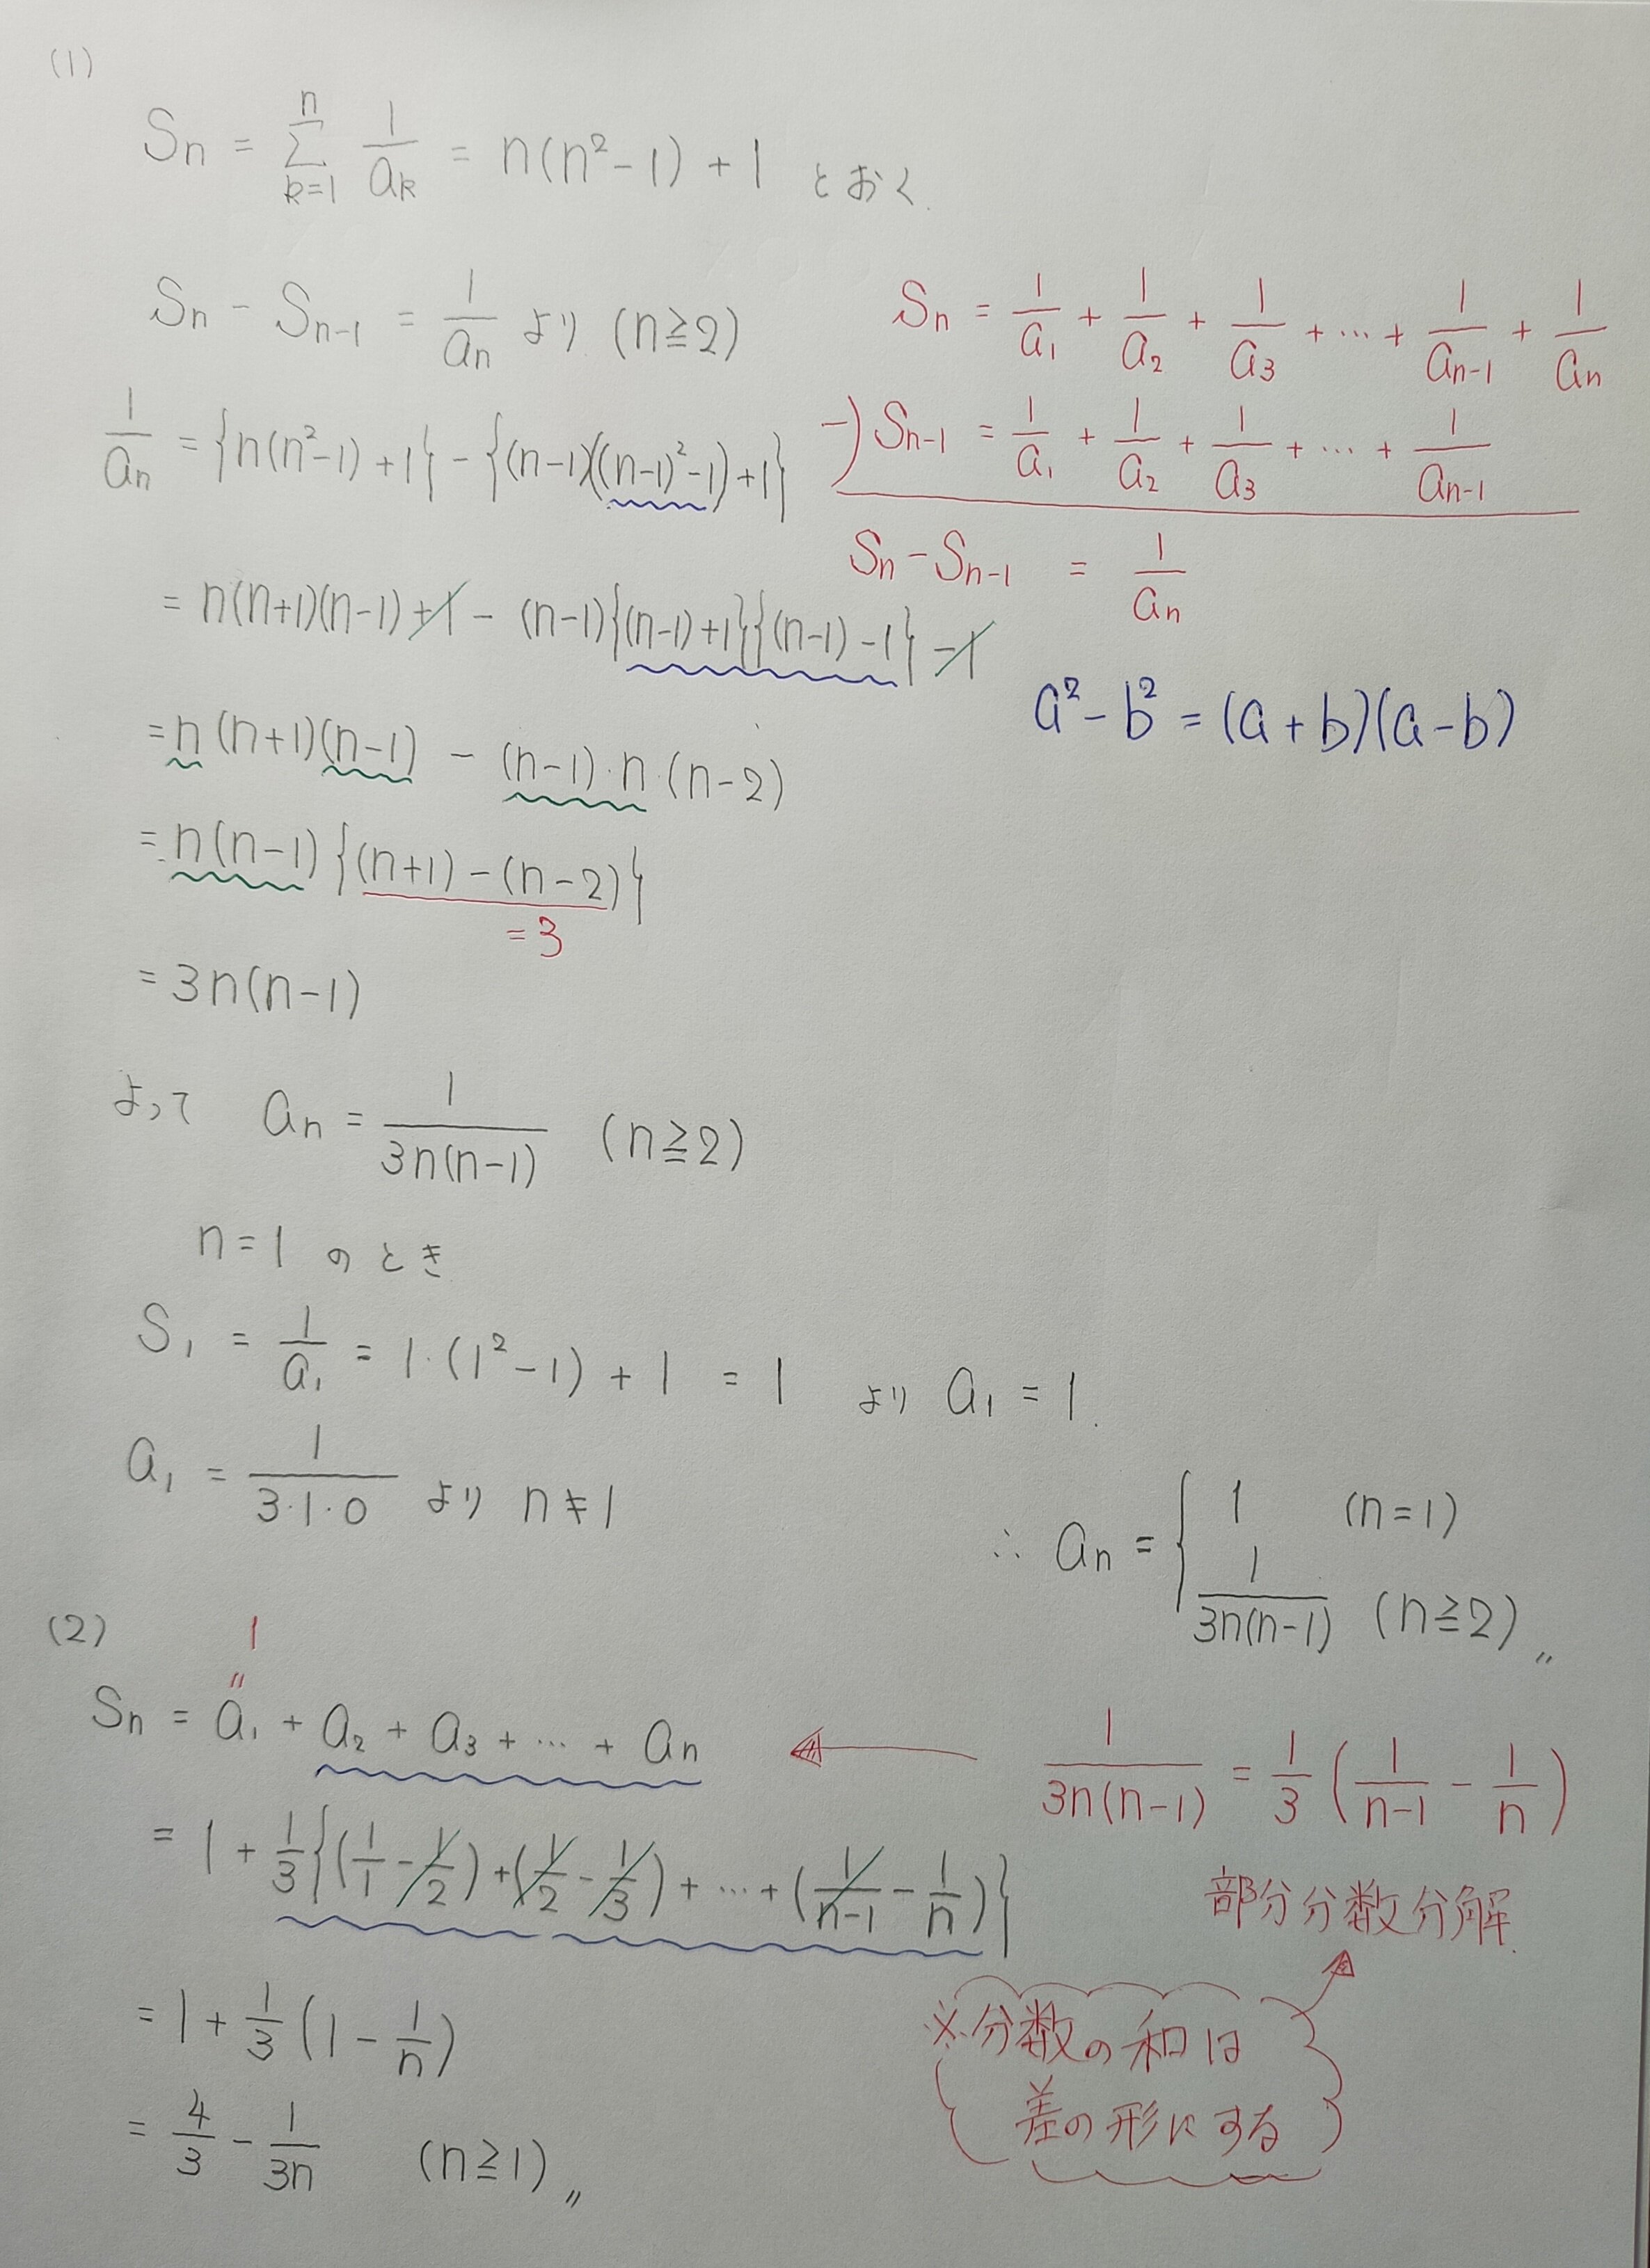 (1)
Sn = Σ[k=1→n] 1/ak = n(n²-1) + 1 とおく.
Sn - Sn-1 = 1/an より (n≧2)
Sn = 1/a1 + 1/a2 + 1/a3 + … + 1/an-1 + 1/an
-) Sn-1 = 1/a1 + 1/a2 + 1/a3 + … + 1/an-1
Sn - Sn-1 = 1/an
1/an = {n(n²-1)+1} - {(n-1)((n-1)²-1)+1}
= n(n+1)(n-1)+1 - (n-1){(n-1)+1}{(n-1)-1} -1
a²-b² = (a+b)(a-b)
= n(n+1)(n-1) - (n-1)・n・(n-2)
= n(n-1){(n+1)-(n-2)}
=3
= 3n(n-1)
よって an = 1/3n(n-1) (n≧2)
n=1 のとき
S1 = 1/a1 = 1・(1²-1) + 1 = 1 より a1 = 1.
a1 = 1/3・1・0 より n≠1
∴ an = { 1 (n=1)
1/3n(n-1) (n≧2) 〃
(2)
1
〃
Sn = a1 + a2 + a3 + … + an
1/3n(n-1) = 1/3 (1/n-1 - 1/n)
部分分数分解
= 1 + 1/3{(1/1 - 1/2) + (1/2 - 1/3) + … + (1/n-1 - 1/n)}
= 1 + 1/3 (1 - 1/n)
※分数の和は
差の形にする
= 4/3 - 1/3n (n≧1) 〃